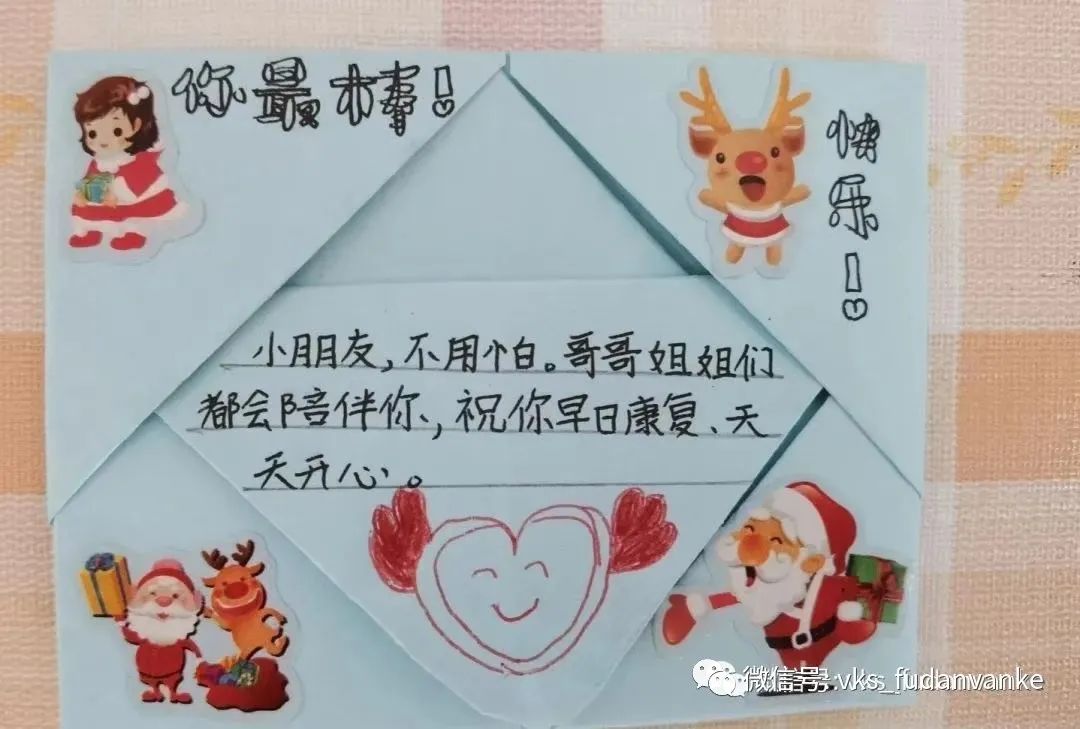 你最棒！
快乐！
小朋友，不用怕。哥哥姐姐们
都会陪伴你，祝你早日康复、天
天开心。
微信号: vks_fudanvanke